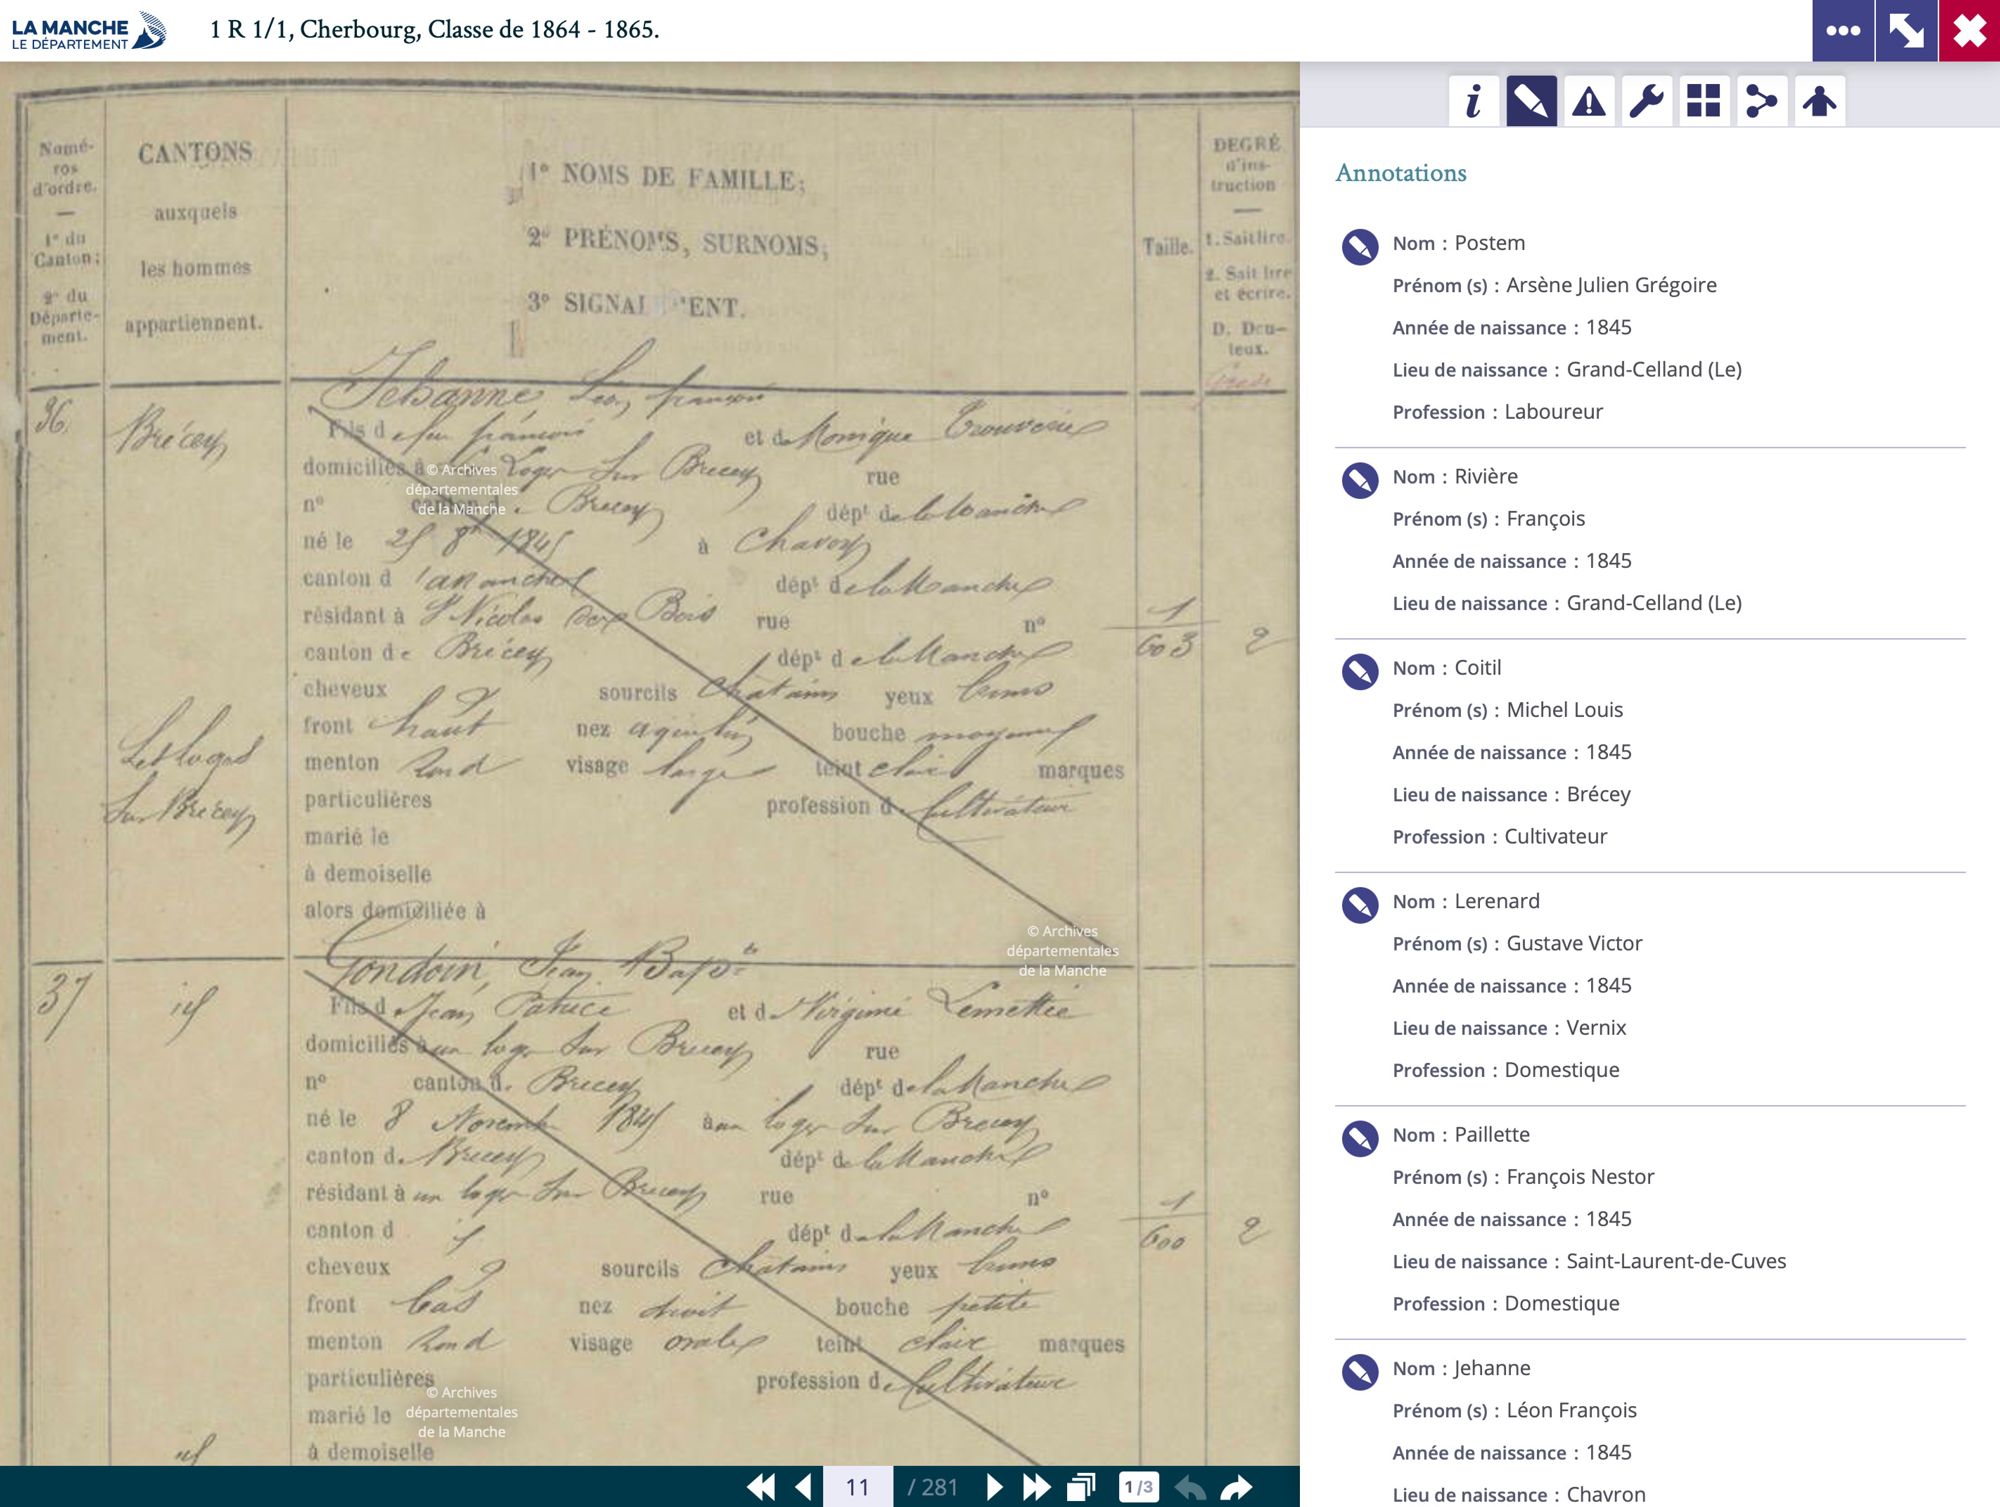 LA MANCHE
LE DÉPARTEMENT
1 R 1/1, Cherbourg, Classe de 1864 - 1865.
Numé-
ros
d'ordre.
1° du
Canton;
2° du
Départe-
ment.
CANTONS
auxquels
les hommes
appartiennent.
1° NOMS DE FAMILLE;
2° PRÉNOMS, SURNOMS;
3° SIGNALEMENT.
Taille.
DEGRÉ
d'ins-
truction
1. Sait lire.
2. Sait lire
et écrire.
D. Dou-
teux.
36.
Brécey
Jehanne Léon françois
Fils de feu françois et de Monique
domiciliés à Loges Sur Brecey rue
n° canton de Brecey dépt de la Manche
né le 25 8bre 1845 à Chavoy
canton d'avranches dépt de la Manche
résidant à St Nicolas des Bois rue n°
canton de Brécey dépt de la Manche
1
603
2
cheveux sourcils Chatains yeux bruns
front haut nez aquilin bouche moyenne
menton rond visage large teint clair marques
particulières profession de Cultivateur
marié le
à demoiselle
alors domiciliée à
Les loges
Sur Brecey
37
id
Gondoin, Jean Bapte
Fils de Jean Patrice et de Virginie Lemettie
domiciliés aux loges Sur Brecey rue
n° canton de Brecey dépt de la Manche
né le 8 Novembre 1845 aux loges Sur Brecey
canton de Brecey dépt de la Manche
résidant aux loges Sur Brecey rue n°
canton d dépt de la Manche
1
600
2
cheveux sourcils Chatains yeux bruns
front bas nez droit bouche petite
menton rond visage ovale teint clair marques
particulières profession de Cultivateur
marié le
à demoiselle
id
© Archives
départementales
de la Manche
© Archives
départementales
de la Manche
© Archives
départementales
de la Manche
11 / 281
1/3
Annotations
Nom : Postem
Prénom (s) : Arsène Julien Grégoire
Année de naissance : 1845
Lieu de naissance : Grand-Celland (Le)
Profession : Laboureur
Nom : Rivière
Prénom (s) : François
Année de naissance : 1845
Lieu de naissance : Grand-Celland (Le)
Nom : Coitil
Prénom (s) : Michel Louis
Année de naissance : 1845
Lieu de naissance : Brécey
Profession : Cultivateur
Nom : Lerenard
Prénom (s) : Gustave Victor
Année de naissance : 1845
Lieu de naissance : Vernix
Profession : Domestique
Nom : Paillette
Prénom (s) : François Nestor
Année de naissance : 1845
Lieu de naissance : Saint-Laurent-de-Cuves
Profession : Domestique
Nom : Jehanne
Prénom (s) : Léon François
Année de naissance : 1845
Lieu de naissance : Chavron